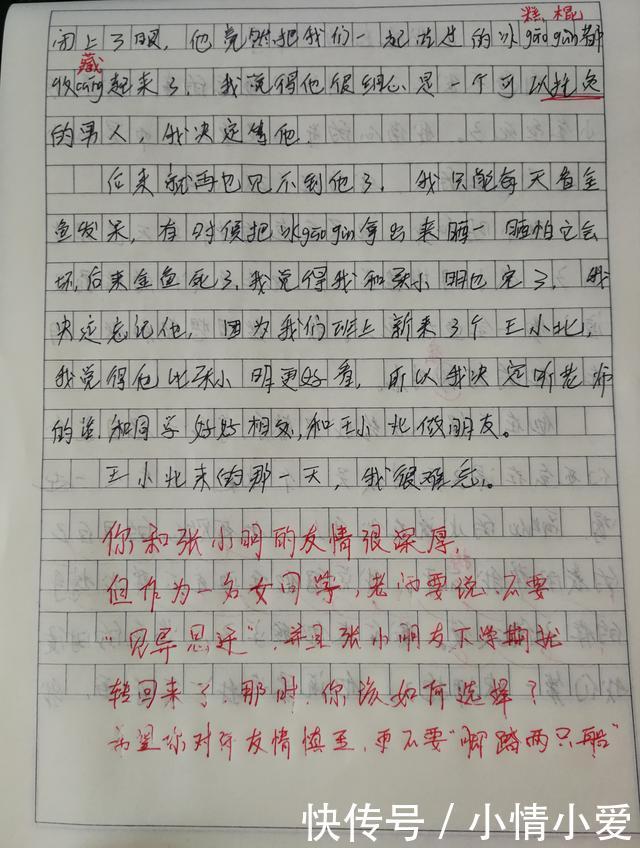 糕 棍
闭上了眼，他竟然把我们一起吃过的冰gāo gùn都
藏
收cáng起来了，我觉得他很细心是一个可以托负
的男人，我决定等他.
后来就再也见不到他了，我只能每天看金
鱼发呆，有时候把冰gāo gùn拿出来晒一晒怕它会
坏，后来金鱼死了，我觉得我和张小明也完了，我
决定忘记他，因为我们班上新来了个王小北，
我觉得他比张小明更好看，所以我决定听老师
的话，和同学好好相处，和王小北做朋友。
王小北来的那一天，我很难忘。
你和张小明的友情很深厚，
但作为一名女同学，老师要说，不要
“见异思迁”，并且张小明友下学期就
转回来了，那时，你该如何选择？
希望你对待友情慎重，更不要“脚踏两只船”
快传号／小情小爱